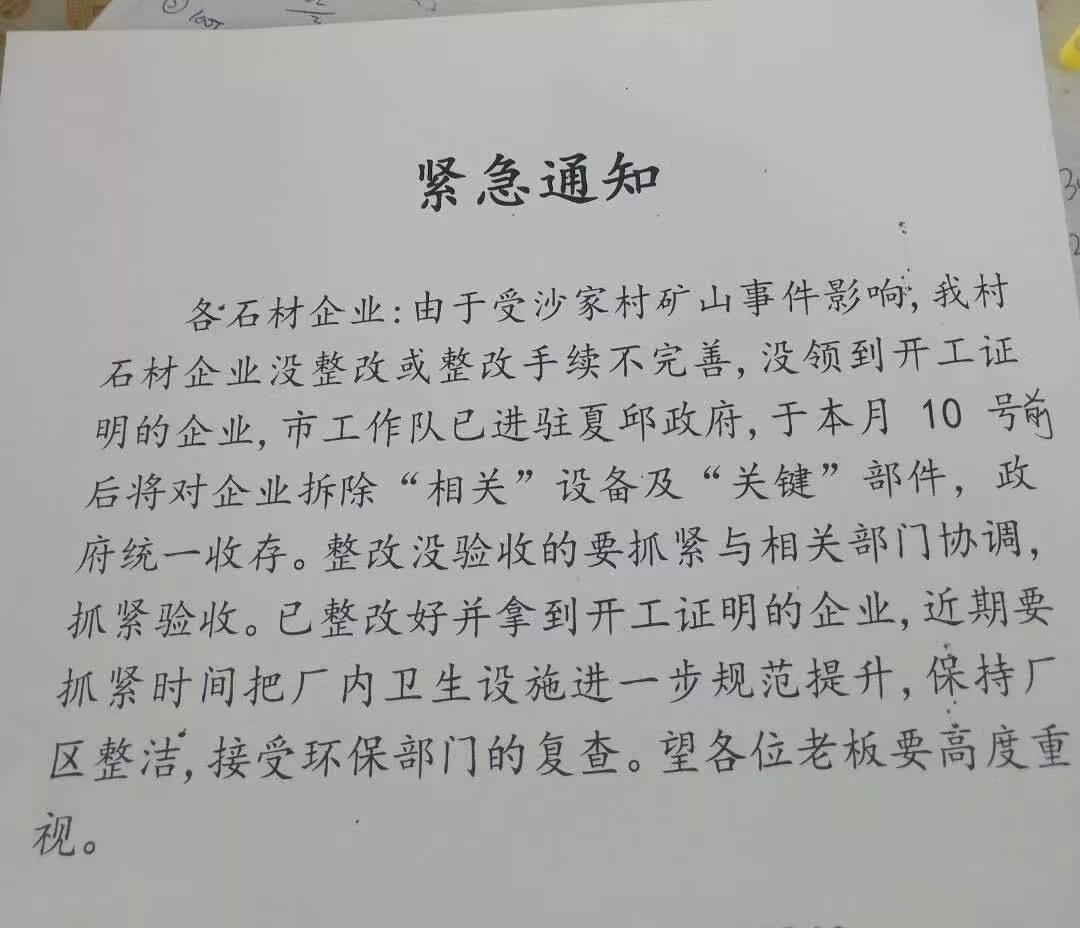 100T
2
紧急通知
各石材企业:由于受沙家村矿山事件影响,我村
石材企业没整改或整改手续不完善,没领到开工证
明的企业,市工作队已进驻夏邱政府,于本月 10 号前
后将对企业拆除“相关”设备及“关键”部件,政
府统一收存。整改没验收的要抓紧与相关部门协调,
抓紧验收。已整改好并拿到开工证明的企业,近期要
抓紧时间把厂内卫生设施进一步规范提升,保持厂
区整洁,接受环保部门的复查。望各位老板要高度重
视。